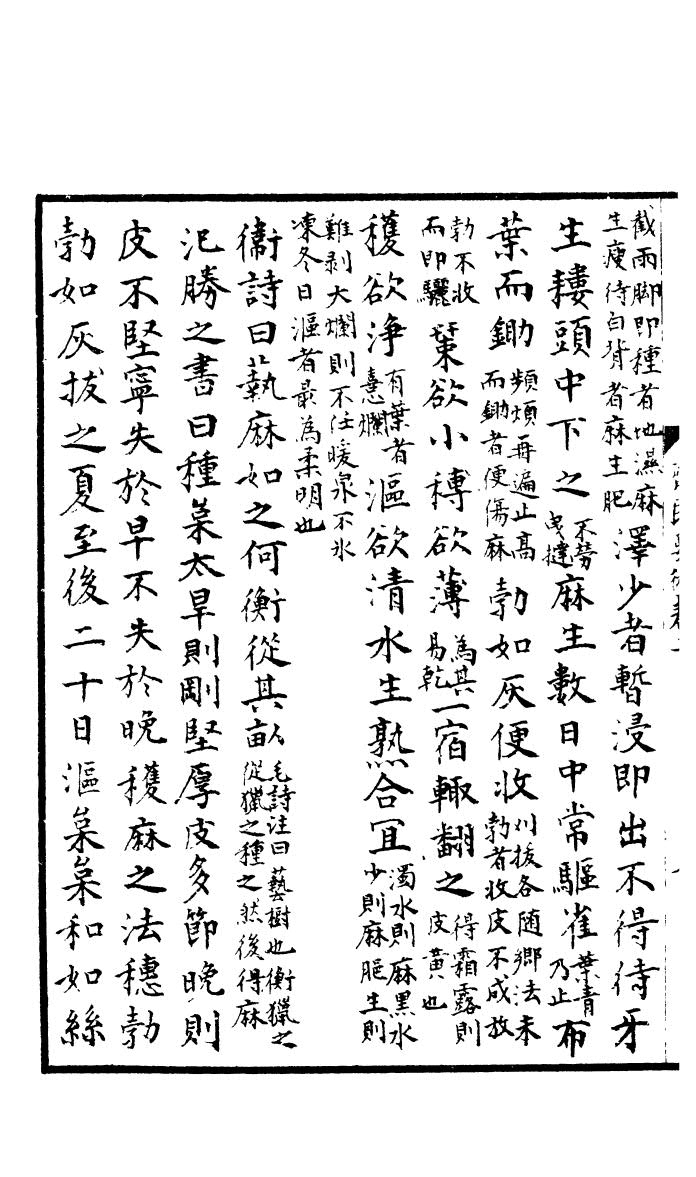 截雨脚即種者地濕麻生瘦待白背者麻生肥澤少者暫浸即出不得待牙
生耬頭中下之不勞曳撻麻生數日中常驅雀葉青乃止布
葉而鋤頻煩再遍止高而鋤者便傷麻勃如灰便收刈拔各隨鄉法未勃者收皮不成放
勃不收而即驪𦼮欲小䅭欲薄為其易乾一宿輙翻之得霜露則皮黃也
穫欲淨有葉者憙爛漚欲清水生熟合冝濁水則麻黑水少則麻脆生則
難剥大爛則不任暖泉不氷凍冬日漚者最為柔明也
衛詩曰蓺麻如之何衡從其畝毛詩注曰藝樹也衡獵之從獵之種之然後得麻
氾勝之書曰種枲太早則剛堅厚皮多節晚則
皮不堅寧失於早不失於晚穫麻之法穗勃
勃如灰拔之夏至後二十日漚枲枲和如絲